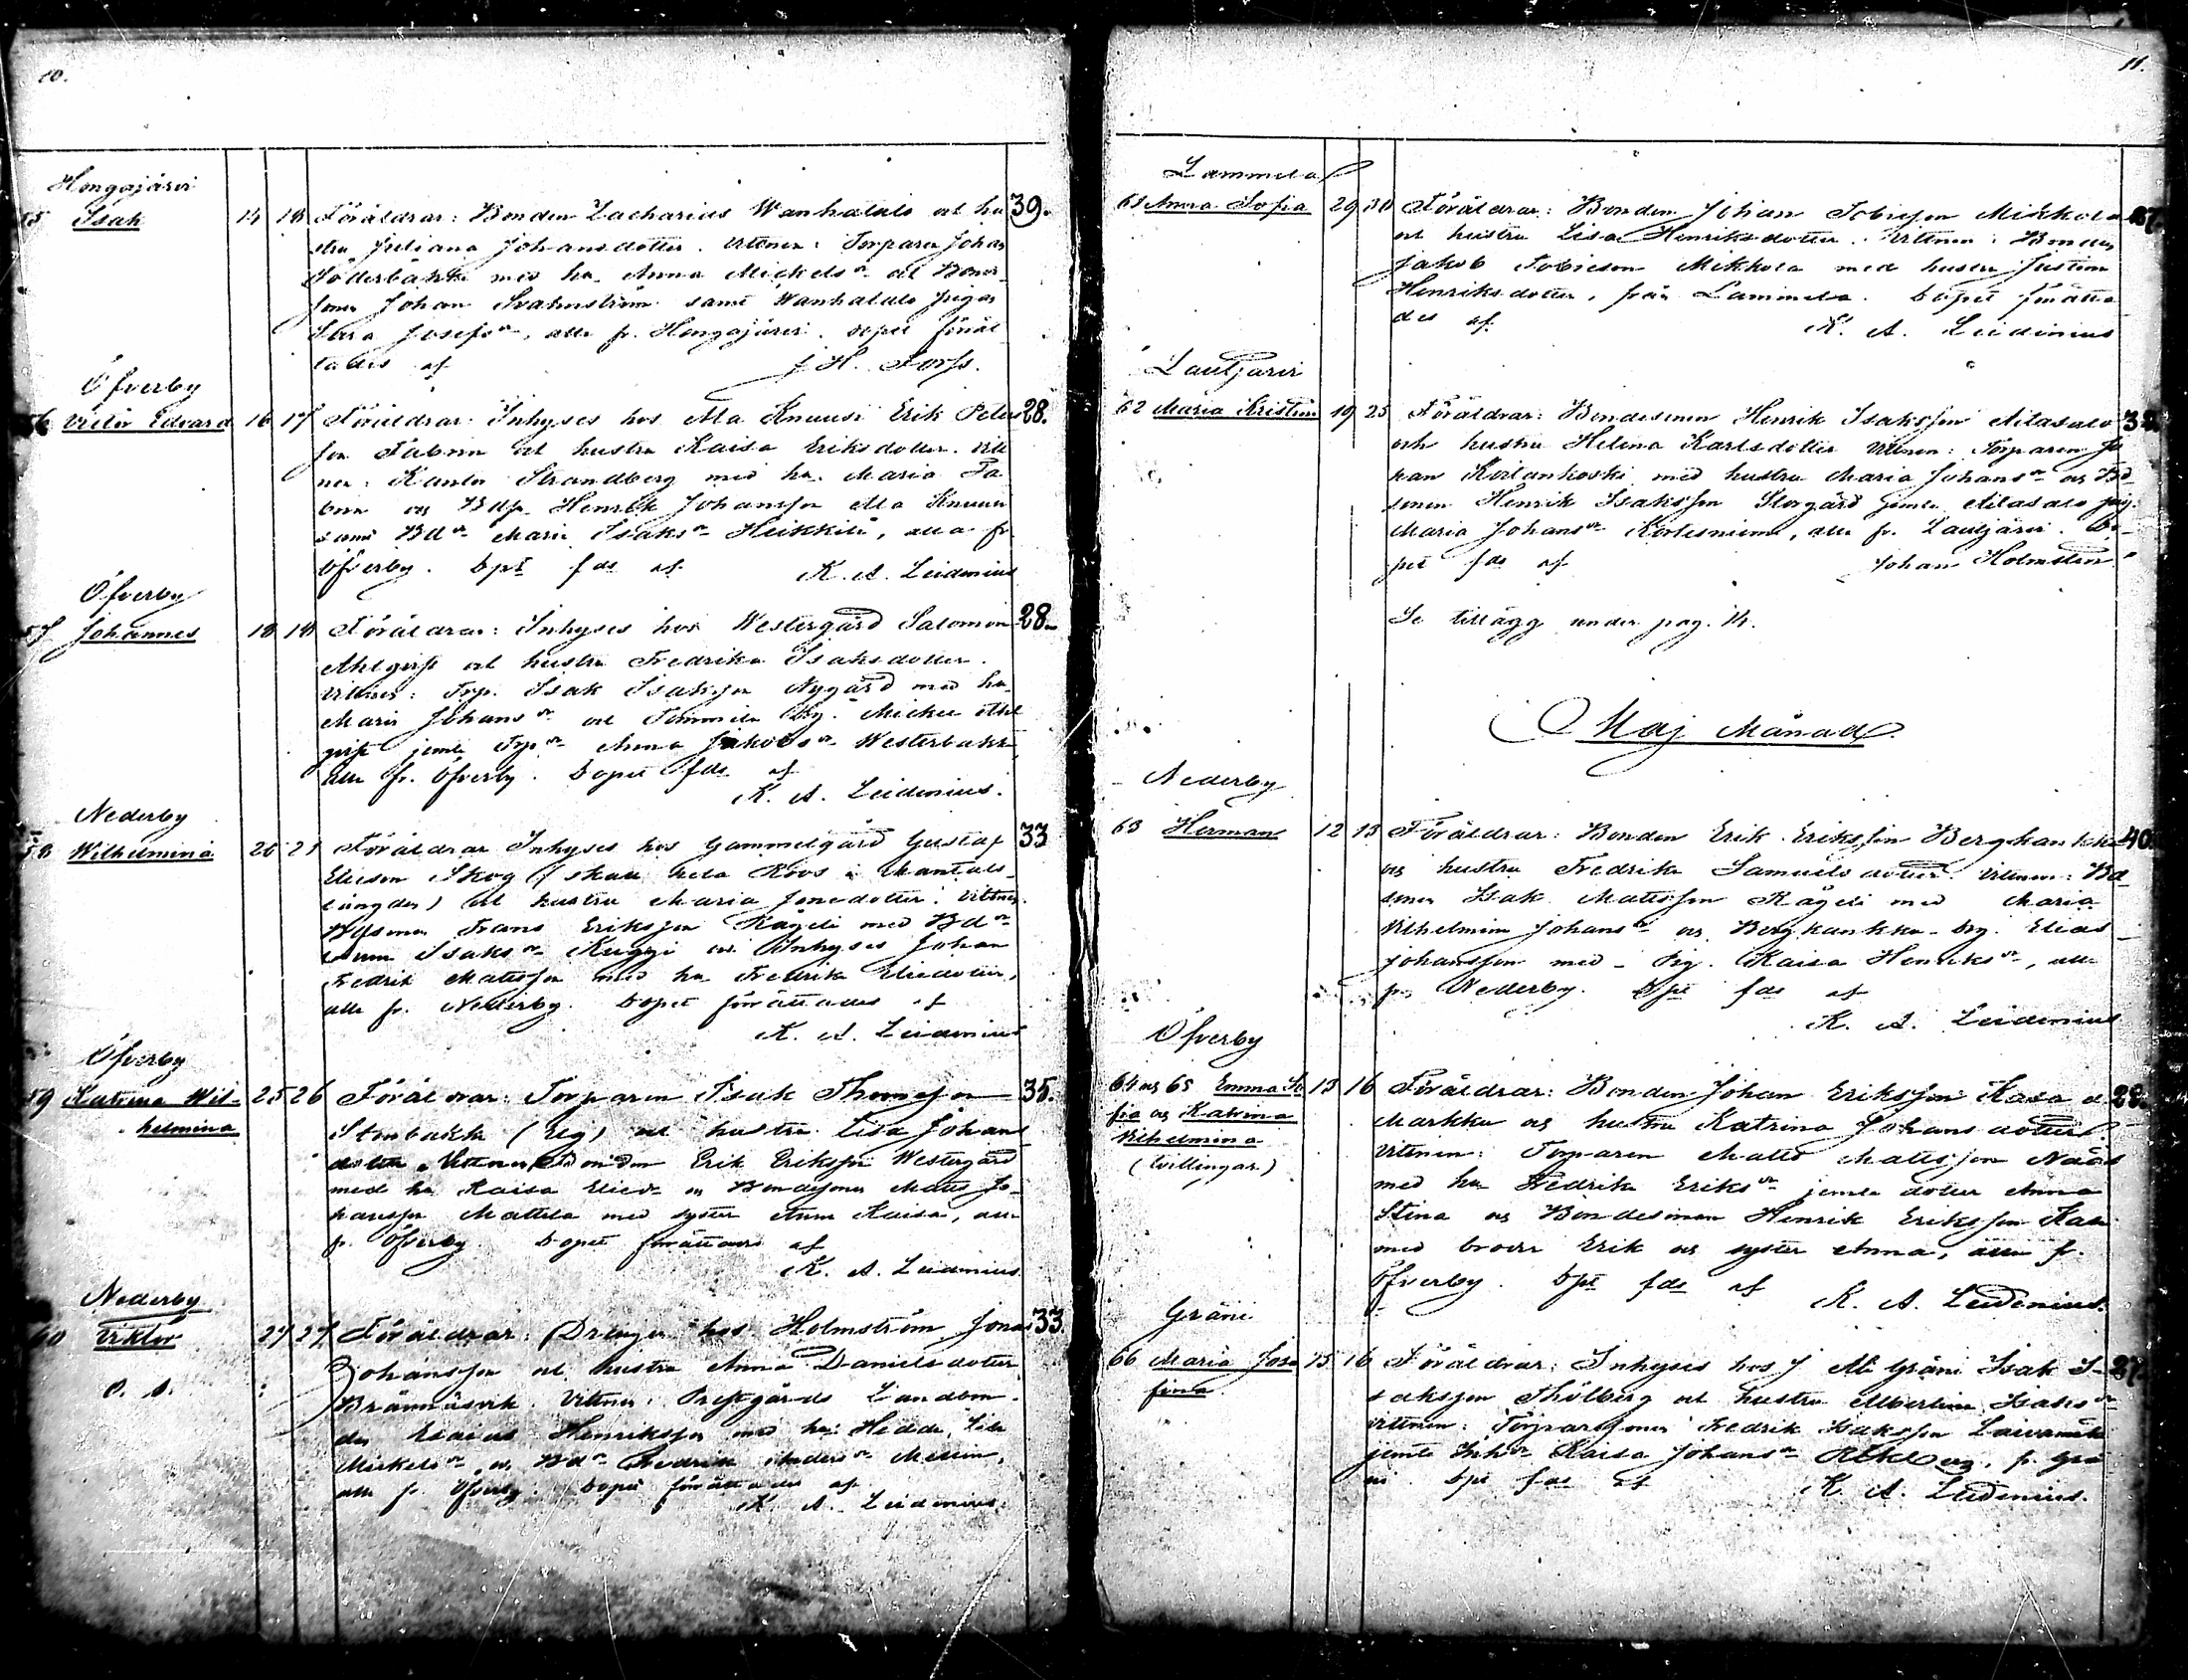 10.
Hongajärvi
55 Isak 14 18 Föräldrar: Bonden Zacharias Wanhatalo och hu 39.
stru Juliana Johansdotter. Vittnen: Torparen Johan
Söderbakka med hu. Anna Mickelsdr och Bonde
sonen Johan Svahnström samt Wanhatalo pigan
Sara Josefsdr, alla fr. Hongajärvi. Dopet förrät
tades af J. H. Forss.
Öfverby
56 Victor Edvard 16 17 Föräldrar: Inhyses hos Ala Knuusi Erik Peters 28.
son Fabrin och hustru Kaisa Eriksdotter. Vitt
nen: Kantor Strandberg med hu. Maria Fa
brin och Bdsn Henrik Johansson Ala Knuusi
samt Bddr Maria Isaksdr Heikkilä, alla fr
Öfverby. Dpt fds af K. A. Leidenius
Öfverby
57 Johannes 18 18 Föräldrar: Inhyses hos Westergård Salomon 28.
Ahlqvist och hustru Fredrika Isaksdotter.
Vittnen: Trp. Isak Isaksson Nygård med hu
Maria Johansdr och Tommila dg. Mickel Ahl
qvist jemte Trpdr Anna Jakobsdr Westerbakk
alla fr. Öfverby. Dopet fds af
K. A. Leidenius.
Nederby
58 Wilhelmina 20 21 Föräldrar Inhyses hos Gammelgård Gustaf 33
Eliesson Skog (skall heta Roos i Mantals
längden) och hustru Maria Jonedotter. Vittnen
Bdsonen Frans Eriksson Rägeli med Bddr
Anna Isaksdr Kuggi och Inhyses Johan
Fredrik Mattsson med hu Fredrika Eliedotter,
alla fr. Nederby. Dopet förrättades af
K. A. Leidenius
Öfverby
59 Katrina Wil- 25 26 Föräldrar: Torparen Isak Thomasson 35.
helmina Stenbakka och hustru Lisa Johans
dotter. Vittnen Bonden Erik Eriksson Westergård
med hu Kaisa Eliedr och Bondesonen Matts Jo
hansson Mattila med syster Anna Kaisa, alla
fr. Öfverby Dopet förrättades af
K. A. Leidenius
Nederby
60 Viktor 27 27 Föräldrar: Drengen hos Holmström Jonas 33.
Johansson och hustru Anna Danielsdotter
Brännäsvik. Vittnen: Prestgårds Landbon
den Esaias Henriksson med hu: Hedda Lisa
Mickelsdr och Bddr Fredrika Andersdr
alla fr. Öfverby. Dopet förrättades af
K. A. Leidenius.
11.
Lammela
61 Anna Sofia 29 30 Föräldrar: Bonden Johan Tobiesson Mikkola
och hustru Lisa Henriksdotter. Vittnen: Bonden
Jakob Tobieson Mikkola med hustru Justina
Henriksdotter, från Lammela. Dopet förrätta
des af K. A. Leidenius
Lautjärvi
62 Maria Kristina 19 25 Föräldrar: Bondesonen Henrik Isaksson Aitasalo
och hustru Helena Karlsdotter Vittnen: Torparen Jo
han Korlankoski med hustru Maria Johansdr och Bd
sonen Henrik Isaksson Storgård jemte Aitasalo pig.
Maria Johansdr Kortesniemi, alla fr. Lautjärvi. Do-
pet fds af Johan Holmström
Se tillägg under pag. 14.
Maj Månad.
Nederby
63 Herman 12 13 Föräldrar: Bonden Erik Eriksson Berghankka 40
och hustru Fredrika Samuelsdotter. Vittnen: Bd
sonen Isak Mattsson Rägeli med Maria
Vilhelmina Johansdr och Berghankka dg. Elias
Johansson med pig. Kaisa Henriksdr, alla
fr. Nederby. Dpt fds af
K. A. Leidenius
Öfverby
64 och 65 Emma So 15 16 Föräldrar: Bonden Johan Eriksson Kasa o. 28.
fia och Katrina Markku och hustru Katrina Johansdotter.
Vilhelmina Vittnen: Torparen Matts Mattsson Näås
(tvillingar.) med hu Fredrika Eriksdr jemte dotter Anna
Stina och Bondesonen Henrik Eriksson Kasa
med broder Erik och syster Anna, alla fr.
Öfverby. Dpt fds af
K. A. Leidenius.
Gräni
66 Maria Jose 15 16 Föräldrar: Inhyses hos J. Ali Gräni Isak I-
fina saksson Thölberg och hustru Albertina Isaksdr
Vittnen: Torparesonen Fredrik Isaksson Laivamäki
jemte Inhdr Kaisa Johansdr fr. Grä
ni. Dpt fds af K. A. Leidenius.